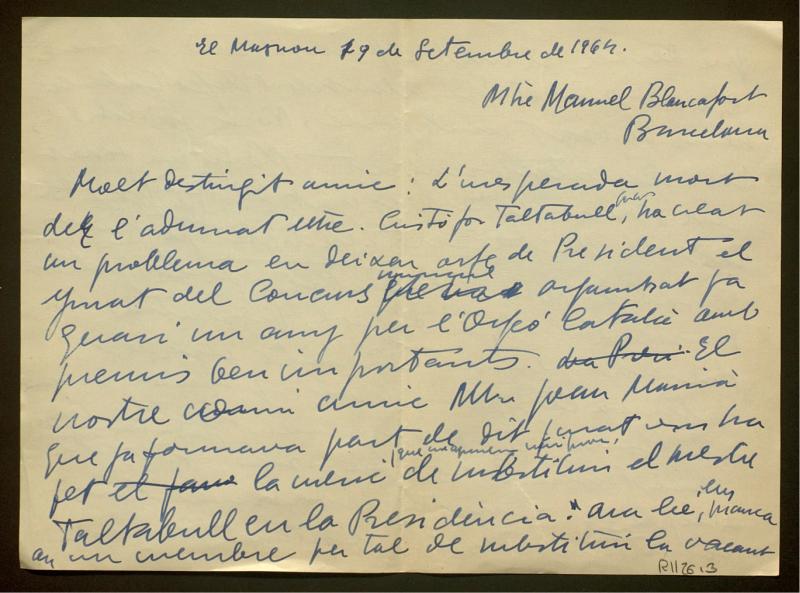 El Masnou 19 de Setembre de 1964.
Mtre Manuel Blancafort
Barcelona
Molt distingit amic: L'inesperada mort
de l'admirat Mtre. Cristòfor Taltabull, ha creat
un problema en deixar orfe de President el
jurat del Concurs organitzat ja
quasi un any per l'Orfeó Català amb
premis ben importants. El
nostre amic Mtre Joan Manià
que ja formava part de dit jurat ens ha
fet la mercè de substituir el mestre
Taltabull en la Presidència: ara bé, ens manca
un membre per tal de substituir la vacant
R1126.3